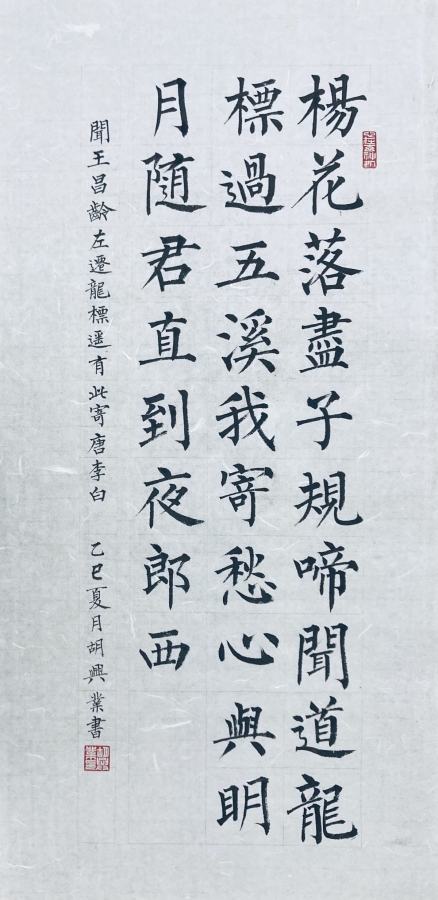 楊花落盡子規啼聞道龍
標過五溪我寄愁心與明
月隨君直到夜郎西
聞王昌齡左遷龍標遥有此寄唐李白 乙巳夏月胡興業書